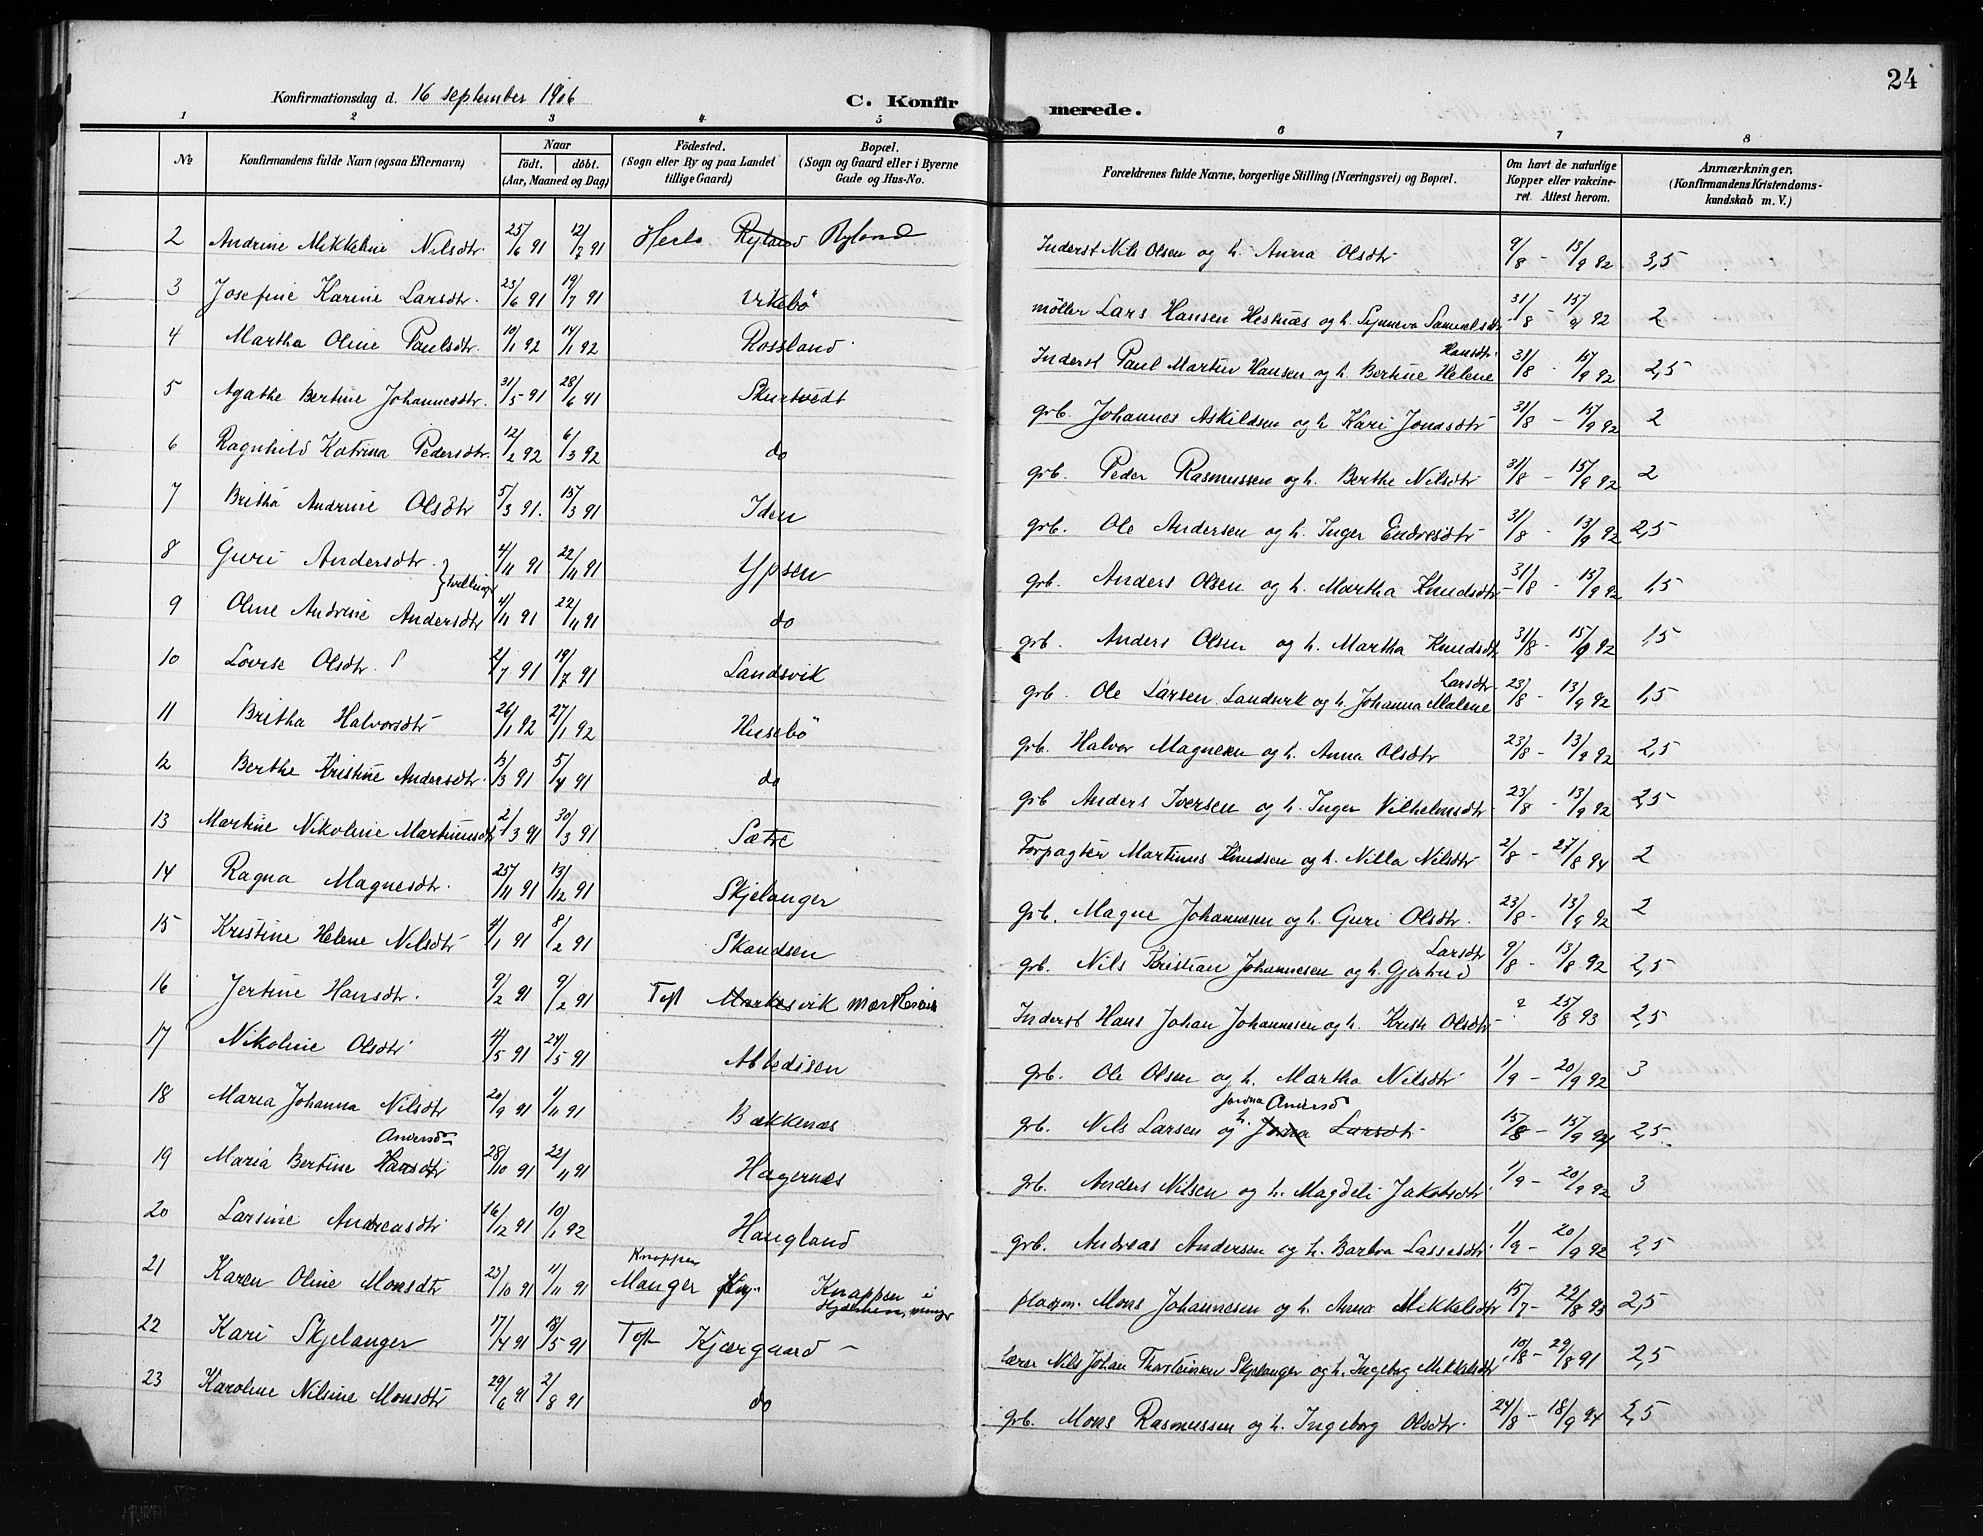 24
Konfirmationsdag d. 16 september 1906
C. Konfirmerede.
1 2 3 4 5 6 7 8
No
Konfirmandens fulde Navn (ogsaa Efternavn)
Naar
födt. döbt.
(Aar, Maaned og Dag)
Födested.
(Sogn eller By og paa Landet
tillige Gaard)
Bopæl.
(Sogn og Gaard eller i Byerne
Gade og Hus-No.
Forældrenes fulde Navne, borgerlige Stilling (Næringsvei) og Bopæl.
Om havt de naturlige
Kopper eller vakcine-
ret. Attest herom.
Anmærkninger,
(Konfirmandens Kristendoms-
kundskab m. V.)
2 Andrine Mikkeline Nilsdtr. 25/6 91 12/7 91 Herlø Ryland Ryland Inderst Nils Olsen og h. Anna Olsdtr 9/8 - 13/9 92 3,5
3 Josefine Karine Larsdtr. 23/6 91 19/7 91 Virkebö møller Lars Hansen Hesknæs og h. Synneva Samuelsdtr 31/8 - 15/9 92 2
4 Martha Oline Paulsdtr. 10/1 92 14/1 92 Rossland Inderst Paul Martin Hansen og h. Bertine Helene Hansdtr. 31/8 - 15/9 92 2,5
5 Agathe Bertine Johannesdtr. 31/5 91 28/6 91 Skurtvedt grb. Johannes Askildsen og h Kari Jonasdtr 31/8 - 15/9 92 2
6 Ragnhild Katrina Pedersdtr. 12/2 92 6/3 92 do grb. Peder Rasmussen og h. Berthe Nilsdtr 31/8 - 15/9 92 2
7 Britha Andrine Olsdtr 5/3 91. 15/3 91 Iden grb. Ole Andersen og h. Inger Endresdtr 31/8 - 13/9 92 2,5
8 Guri Andersdtr. } tvillinger 4/11 91 22/11 91 Ypsen grb. Anders Olsen og h. Martha Knudsdtr 31/8 - 15/9 92 1,5
9 Oline Andrine Andersdtr 4/11 91 22/11 91 do grb. Anders Olsen og h. Martha Knudsdt 31/8 - 15/9 92 1,5
10 Lovise Olsdtr. 2/7 91 19/7 91 Landsvik grb. Ole Larsen Landsvik og h. Johanna Malene Larsdtr 23/8 - 13/9 92 1,5
11 Britha Halvorsdtr 26/1 92 27/1 92 Husebö grb. Halvor Magnesen og h. Anna Olsdtr 23/8 - 13/9 92 2,5
12 Berthe Kristine Andersdtr. /3 91 5/4 91 do grb Anders Iversen og h. Inger Vilhelmsdtr 23/8 - 13/9 92 2,5
13 Martine Nikoline Martinusdtr 2/3 91 30/3 91 Sætre Forpagter Martinus Knudsen og h. Nilla Nilsdtr 2/8 - 27/8 94 2
14 Ragna Magnesdtr. 25/11 91 13/12 91 Skjelanger grb. Magne Johannesen og h. Guri Olsdtr. 23/8 - 13/9 92 2
15 Kristine Helene Nilsdtr 4/1 91 8/2 91 Skandsen grb. Nils Kristian Johannesen og h. Gjertrud Larsdtr 9/8 - 13/8 92 2,5
16 Jertine Hansdtr. 9/2 91 9/2 91 Toft Markesvik Markesvik Inderst Hans Johan Johannesen og h. Kristi Olsdtr ? 25/8 93 2,5
17 Nikoline Olsdtr 4/5 91 24/5 91 Abbedisen grb. Ole Olsen og h. Martha Nilsdtr 1/9 - 20/9 92 3
18 Maria Johanna Nilsdtr 20/9 91 1/11 91 Bækkenæs grb. Nils Larsen og h. Jonna Larsdtr Jordna Andersd 15/8 - 15/9 94 2,5
19 Maria Bertine Hansdtr Andersd 28/10 91 22/11 91 Hagernæs grb. Anders Nilsen og h. Magdeli Jakobsdtr. 1/9 - 20/9 92 3
20 Larsine Andreasdtr 16/12 91 10/1 92 Haugland grb. Andreas Andersen og h. Barbra Lassesdtr 1/9 - 20/9 92 2,5
21 Karen Oline Monsdtr 23/10 91 1/11 91 Knappen Manger Knappen i Hjelmen, manger pladsm. Mons Johannesen og h. Anna Mikkelsdtr 15/7 - 22/8 93 2,5
22 Kari Skjelanger 17/4 91 18/5 91 Toft Kjærgaard - Lærer Nils Johan Thorsteinsen Skjelanger og h. Ingeborg Mikkelsdtr. 10/8 - 29/8 91 2,5
23 Karoline Nilsine Monsdtr 29/6 91 2/8 91 do grb. Mons Rasmussen og h. Ingeborg Olsdtr. 24/8 - 18/9 94 2,5